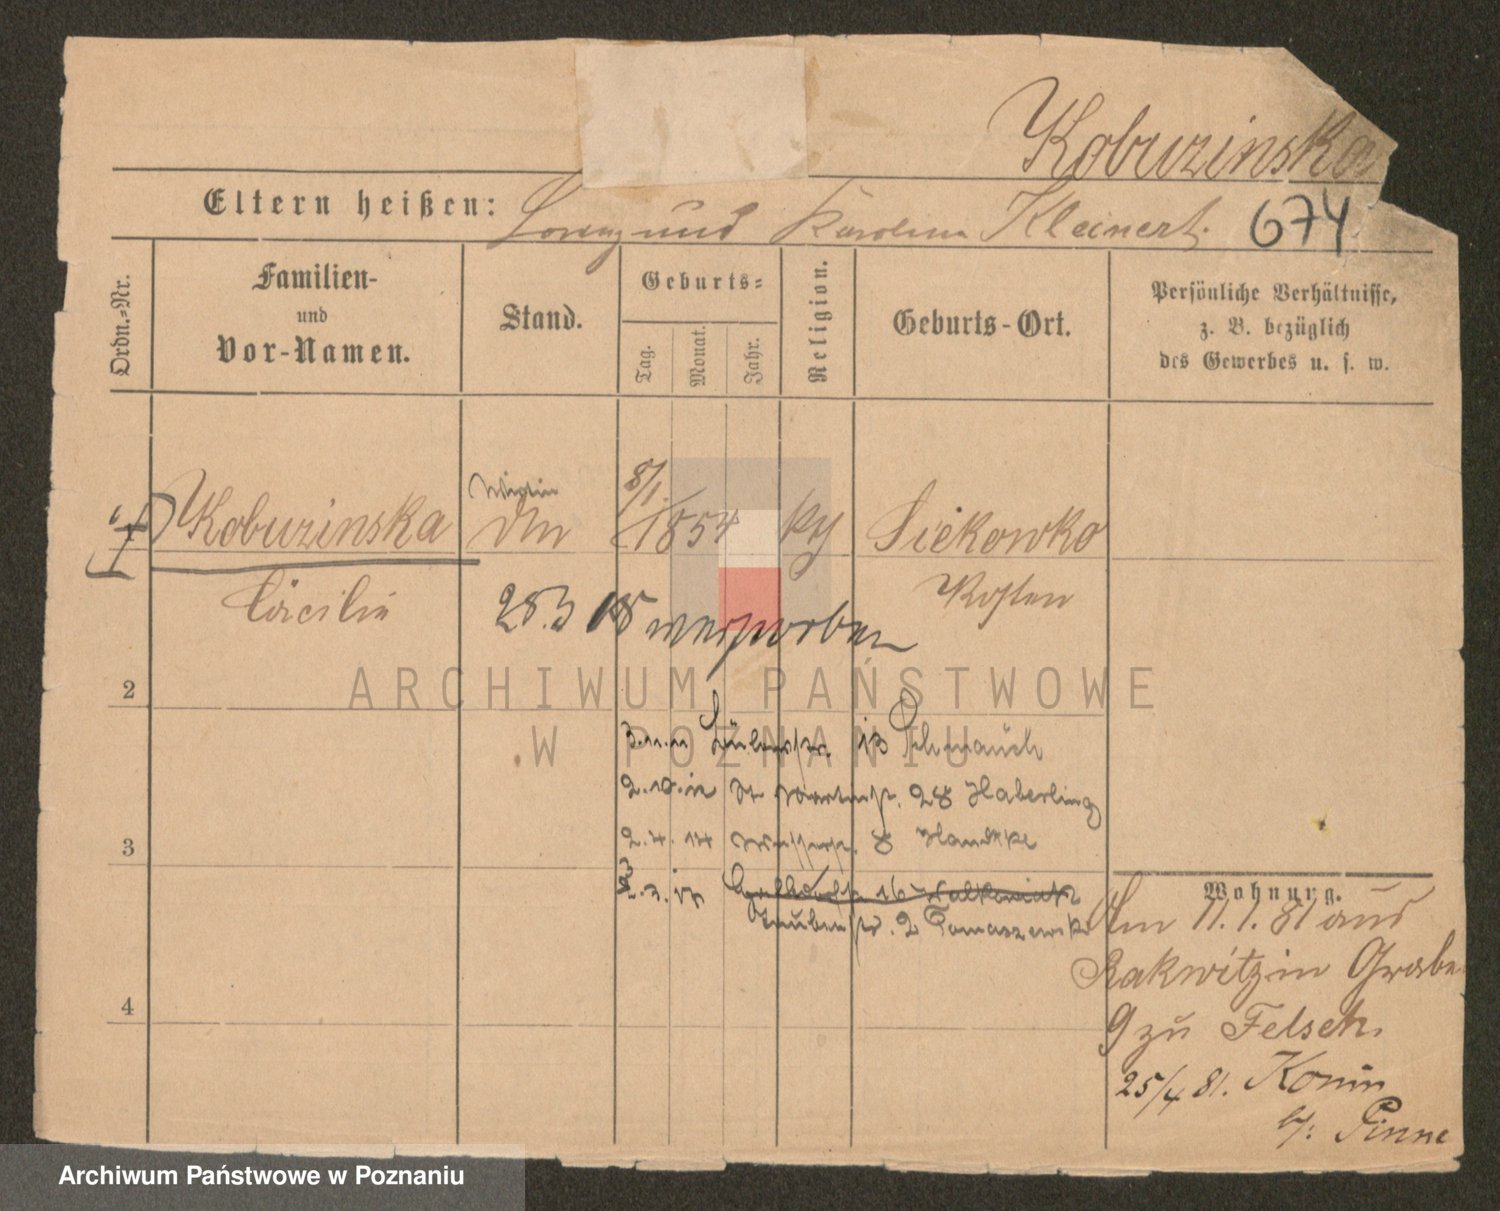 Kobuzinska
Eltern heißen: Lorenz und Karolina Kleinert. 674
Ordn.-Nr.
Familien-
und
Vor-Namen.
Stand.
Geburts-
Tag.
Monat.
Jahr.
Religion.
Geburts-Ort.
Persönliche Verhältnisse,
z. B. bezüglich
des Gewerbes u. s. w.
1 Kobuzinska 8/1. 1854 Siekowko
Cäcilie Kosten
28.3 18 verstorben
2
ARCHIWUM PAŃSTWOWE
W POZNANIU
3.11.11 13
2.10.12 St Martinstr. 28 Haberling
3
2.4.14 8 Handke
16
Grabenstr. 2 Tomaszewski
4
Wohnung.
Am 11.1.81 aus
Rakwitz in Graben
9 zu Felsch.
25/4 81. Konin
b/. Pinne
Archiwum Państwowe w Poznaniu